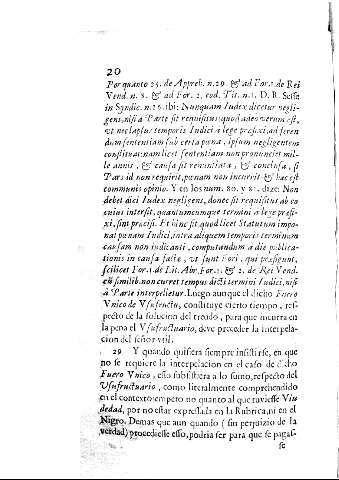 20
Por quanto 25. de Appreh. n.29. & ad For.1. de Rei
Vend. n. 8. & ad For. 2. eod. Tit. n.1. D. R. Sesse
in Syndic. n.26. ibi: Nunquam Iudex dicetur negli-
gens, nisi à Parte sit requisitus: quod adeo verum est,
vt nec lapsus temporis Iudici à lege præfixi ad feren
dum sententiam sub certa pœna, ipsum negligentem
constituat: nam licet sententiam non pronunciet mil-
le annis, & causa sit renuntiata, & conclusa, si
Pars id non requirit, pœnam non incurrit & hæc est
communis opinio. Y en los num. 80. y 81. dize: Non
debet dici Iudex negligens, donec sit requisitus ab eo
cuius interfit, quantumcumque termini à lege præfi-
xi, sint præcisi. Et hinc fit, quod licet Statutum impo-
nat pœnam Iudici, intra aliquem temporis terminum
causam non iudicanti, computandum à die publica-
tionis in causa factæ, vt sunt Fori, qui præfigunt,
scilicet For.1. de Lit. Abr. For.1. & 2. de Rei Vend.
cũ similib. non curret tempus dicti termini Iudici, nisi
à Parte interpelletur. Luego aunque el dicho Fuero
Vnico de Vsufructu, constituye cierto tiempo, res-
pecto de la solucion del treudo, para que incurra en
la pena el Vsufructuario, deve preceder la interpela-
cion del señor vtil.
29 Y quando quisiera siempre insistirse, en que
no se requiere la interpelacion en el caso de dicho
Fuero Vnico, esto subsistiera a lo sumo, respecto del
Vsufructuario, como literalmente comprehendido
en el contexto: empero no quanto al que tuviesse Viu
dedad, por no estar expressada en la Rubrica, ni en el
Nigro. Demas que aun quando ( sin perjuizio de la
verdad) procediesse esso, podria ser para que se pagas-
se